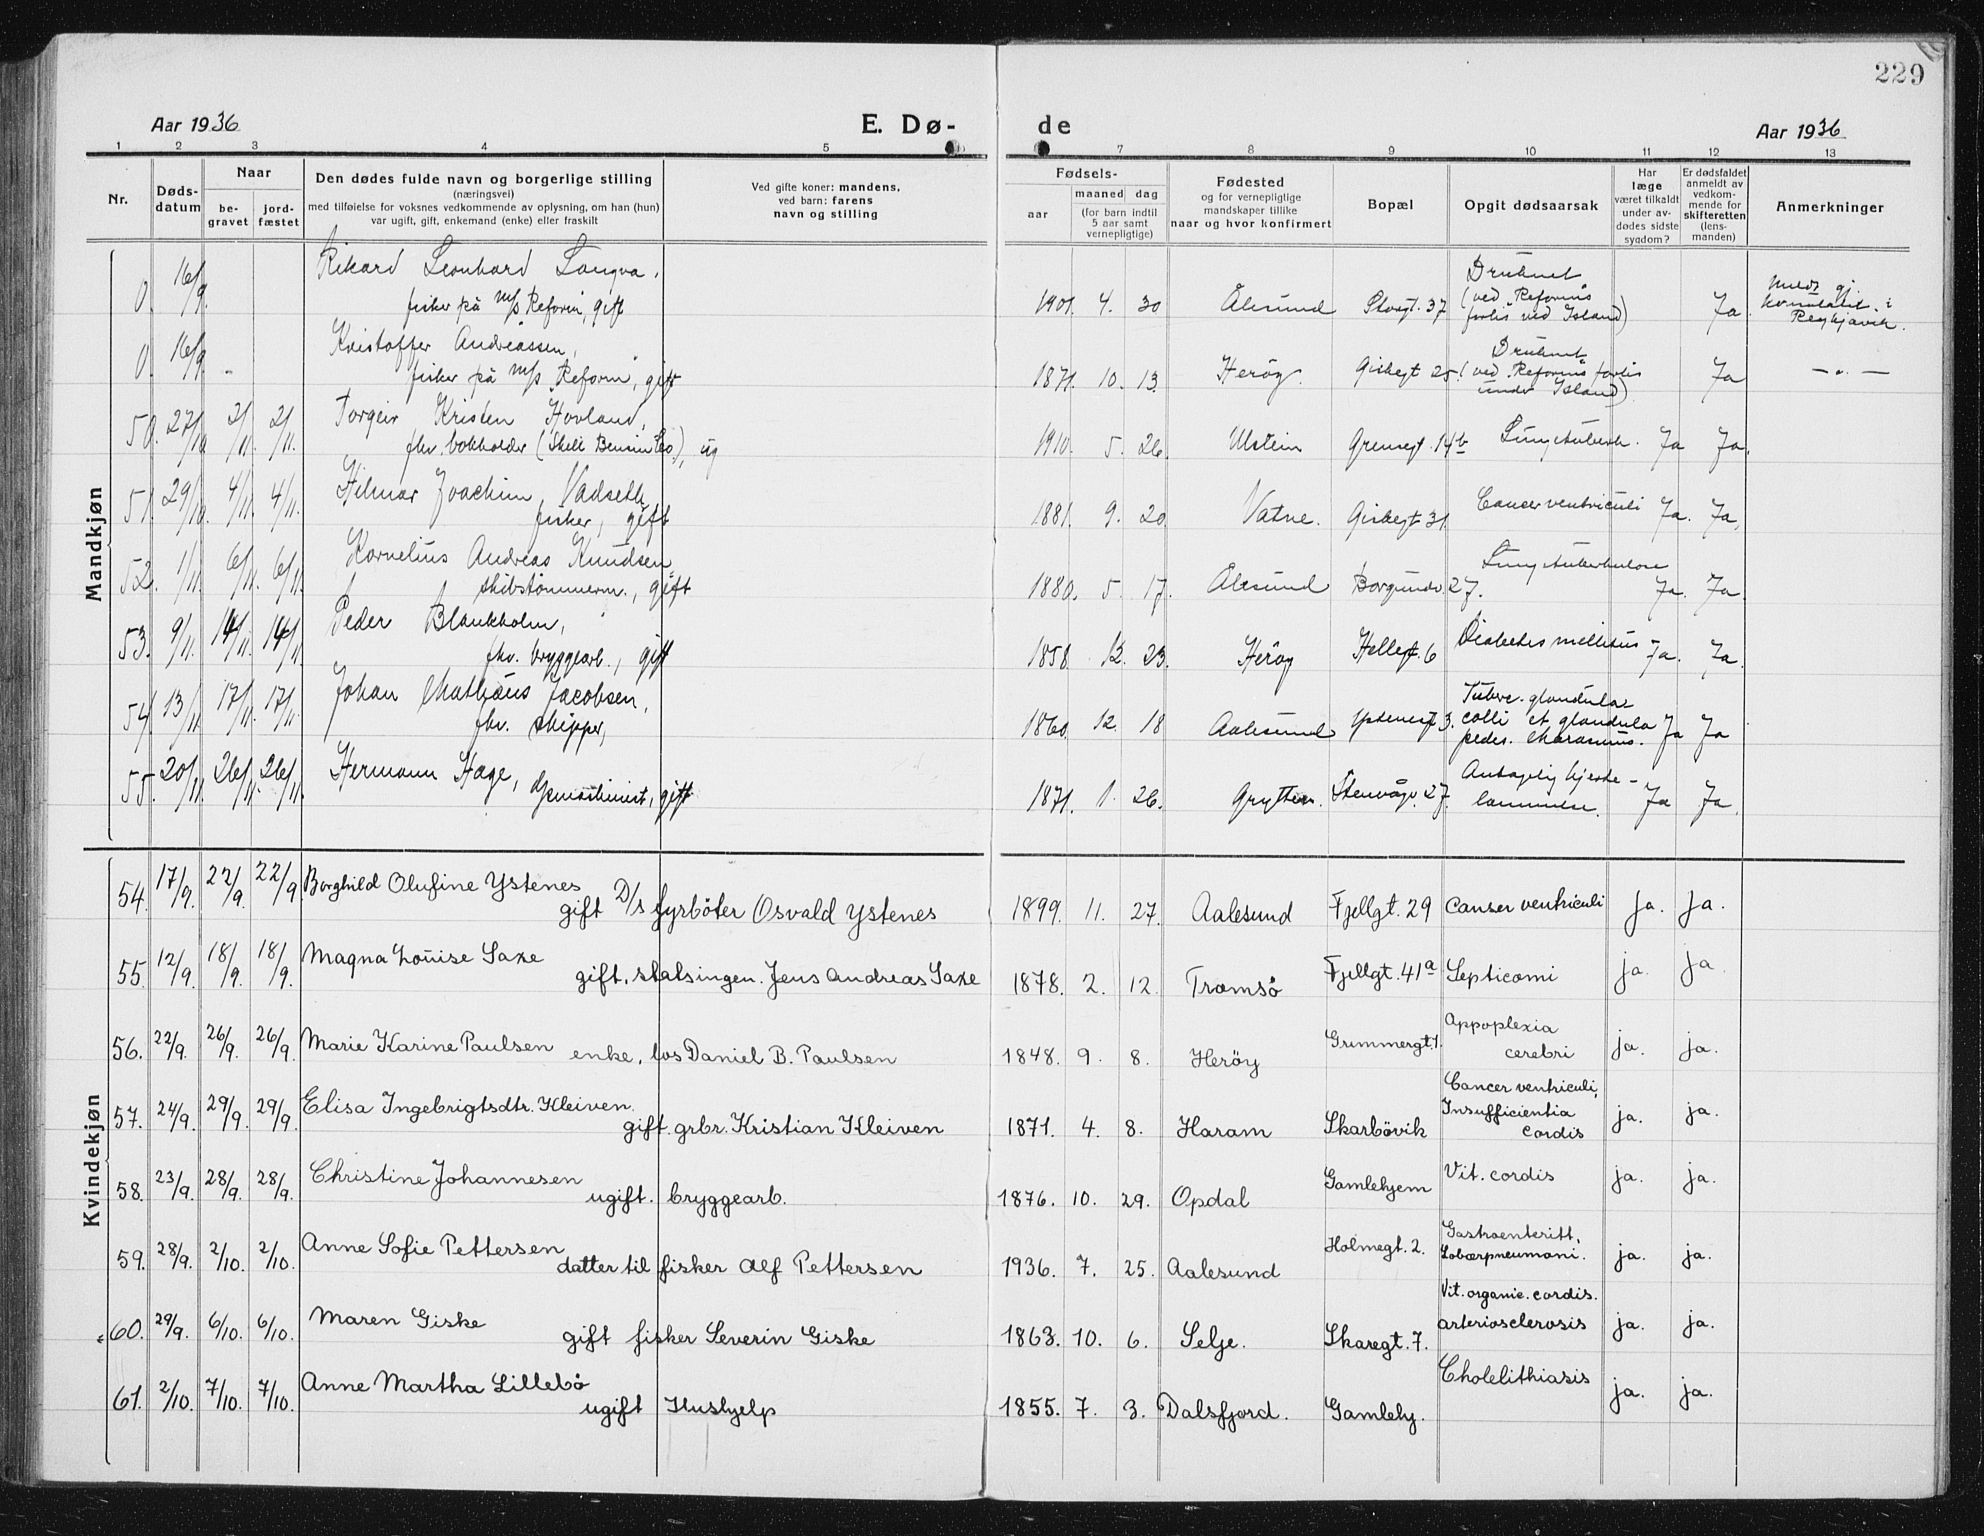 229
Aar 1936 E. Dø- de Aar 1936
1 2 3 4 5 7 8 9 10 11 12 13
Nr. Døds-datum Naar be-gravet jord-fæstet Den dødes fulde navn og borgerlige stilling (næringsvei) med tilføielse for voksnes vedkommende av oplysning, om han (hun) var ugift, gift, enkemand (enke) eller fraskilt Ved gifte koner: mandens, ved barn: farens navn og stilling Fødsels- aar maaned dag (for barn indtil 5 aar samt vernepligtige) Fødested og for vernepligtige mandskaper tillike naar og hvor konfirmert Bopæl Opgit dødsaarsak Har læge været tilkaldt under av-dødes sidste sygdom? Er dødsfaldet anmeldt av vedkom-mende for skifteretten (lens-manden) Anmerkninger
Mandkjøn
0. 16/9. Rikard Leonhard Langva,
fisker på m/s "Reform", gift 1901. 4. 30 Ålesund Storgt. 37 Druknet (ved "Reforms" forlis ved Island) Ja Reykjavik.
0. 16/9. Kristoffer Andreassen,
fisker på m/s "Reform", gift 1871. 10. 13. Herøy. 25. Druknet (ved "Reforms" forlis under Island) Ja — " —
50. 27/10 2/11. 2/11. Torgeir Kristen Hovland,
fhv. bokholder (Shell Bensin Co), ug 1910. 5. 26. Ulstein Grensegt. 14b Lungetuberk. Ja Ja.
51. 29/10. 4/11. 4/11. Hilmar Joachim Vadseth,
fisker, gift 1881. 9. 20. Vatne. 31. Cancer ventriculi Ja. Ja.
52. 1/11. 6/11. 6/11. Kornelius Andreas Knudsen,
skibstømmerm., gift 1880. 5. 17. Ålesund Borgundv. 27. Lungetuberkulose Ja. Ja.
53. 9/11. 14/11. 14/11 Peder Blankholm,
fhv. bryggearb., gift 1858. 12. 23. Herøy Hellegt. 6 Diabetes mellitus Ja. Ja.
54. 13/11 17/11. 17/11. Johan Mathæus Jacobsen,
fhv. skipper, 1860. 12. 18 Aalesund 3. Tuberc. glandula colli et glandula pedes. Marasmus. Ja Ja
55. 20/11 26/11. 26/11. Hermann Hage,
gift 1871. 1. 26. Grytten. Stenvågv. 27. Antagelig hjerte-lammelse. Ja Ja.
Kvindekjøn
54. 17/9. 22/9. 22/9. Borghild Olufine Ystenes
gift D/s fyrböter Osvald Ystenes 1899. 11. 27. Aalesund Fjellgt. 29 Canser ventriculi ja. ja.
55. 12/9. 18/9. 18/9. Magna Louise Saxe
gift, statsingen. Jens Andreas Saxe 1878. 2. 12. Tromsö Fjellgt. 41a Septicæmi ja. ja.
56. 22/9. 26/9. 26/9. Marie Karine Paulsen
enke, los Daniel B. Paulsen 1848. 9. 8. Heröy Grimmergt. 1. Appoplexia cerebri ja. ja.
57. 24/9. 29/9. 29/9. Elisa Ingebrigtsdtr. Kleiven
gift. grbr. Kristian Kleiven 1871. 4. 8. Haram Skarbövik Cancer ventriculi, Insufficientia cordis ja. ja.
58. 23/9. 28/9. 28/9. Christine Johannesen
ugift. bryggearb. 1876. 10. 29. Opdal Gamlehjem Vit. cordis ja. ja.
59. 28/9. 2/10. 2/10. Anne Sofie Pettersen
datter til fisker Alf Pettersen 1936. 7. 25. Aalesund Holmegt. 2. Gastroenteritt, Lobærpneumoni. ja. ja.
60. 29/9. 6/10. 6/10. Maren Giske
gift fisker Severin Giske 1863. 10. 6. Selje. Skaregt. 7. Vit. organic. cordis. arteriosclerosis ja. ja.
61. 2/10. 7/10. 7/10. Anne Martha Lillebö
ugift Hushjelp 1855. 7. 3. Dalsfjord. Gamlehj. Cholelithiasis ja. ja.